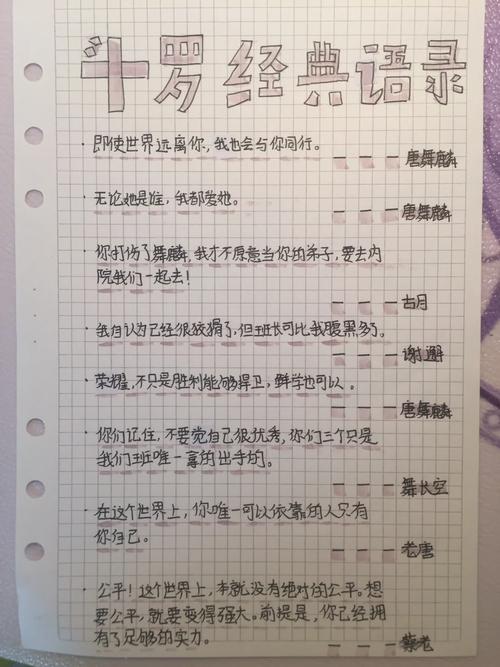 斗罗经典语录
·即使世界远离你，我也会与你同行。
———唐舞麟
·无论她是谁，我都爱她。
———唐舞麟
·你打伤了舞麟，我才不愿意当你的弟子，要去内
院我们一起去！
———古月
·我自认为已经很狡猾了，但班长可比我腹黑多了。
———谢邂
·荣耀，不只是胜利能够捍卫，鲜学也可以。
———唐舞麟
·你们记住，不要觉自己很优秀，你们三个只是
我们班唯一拿的出手的。
———舞长空
·在这个世界上，你唯一可以依靠的人只有
你自己。
———老唐
·公平！这个世界上，本就没有绝对的公平。想
要公平，就要变得强大。前提是，你已经拥
有了足够的实力。
———蔡老